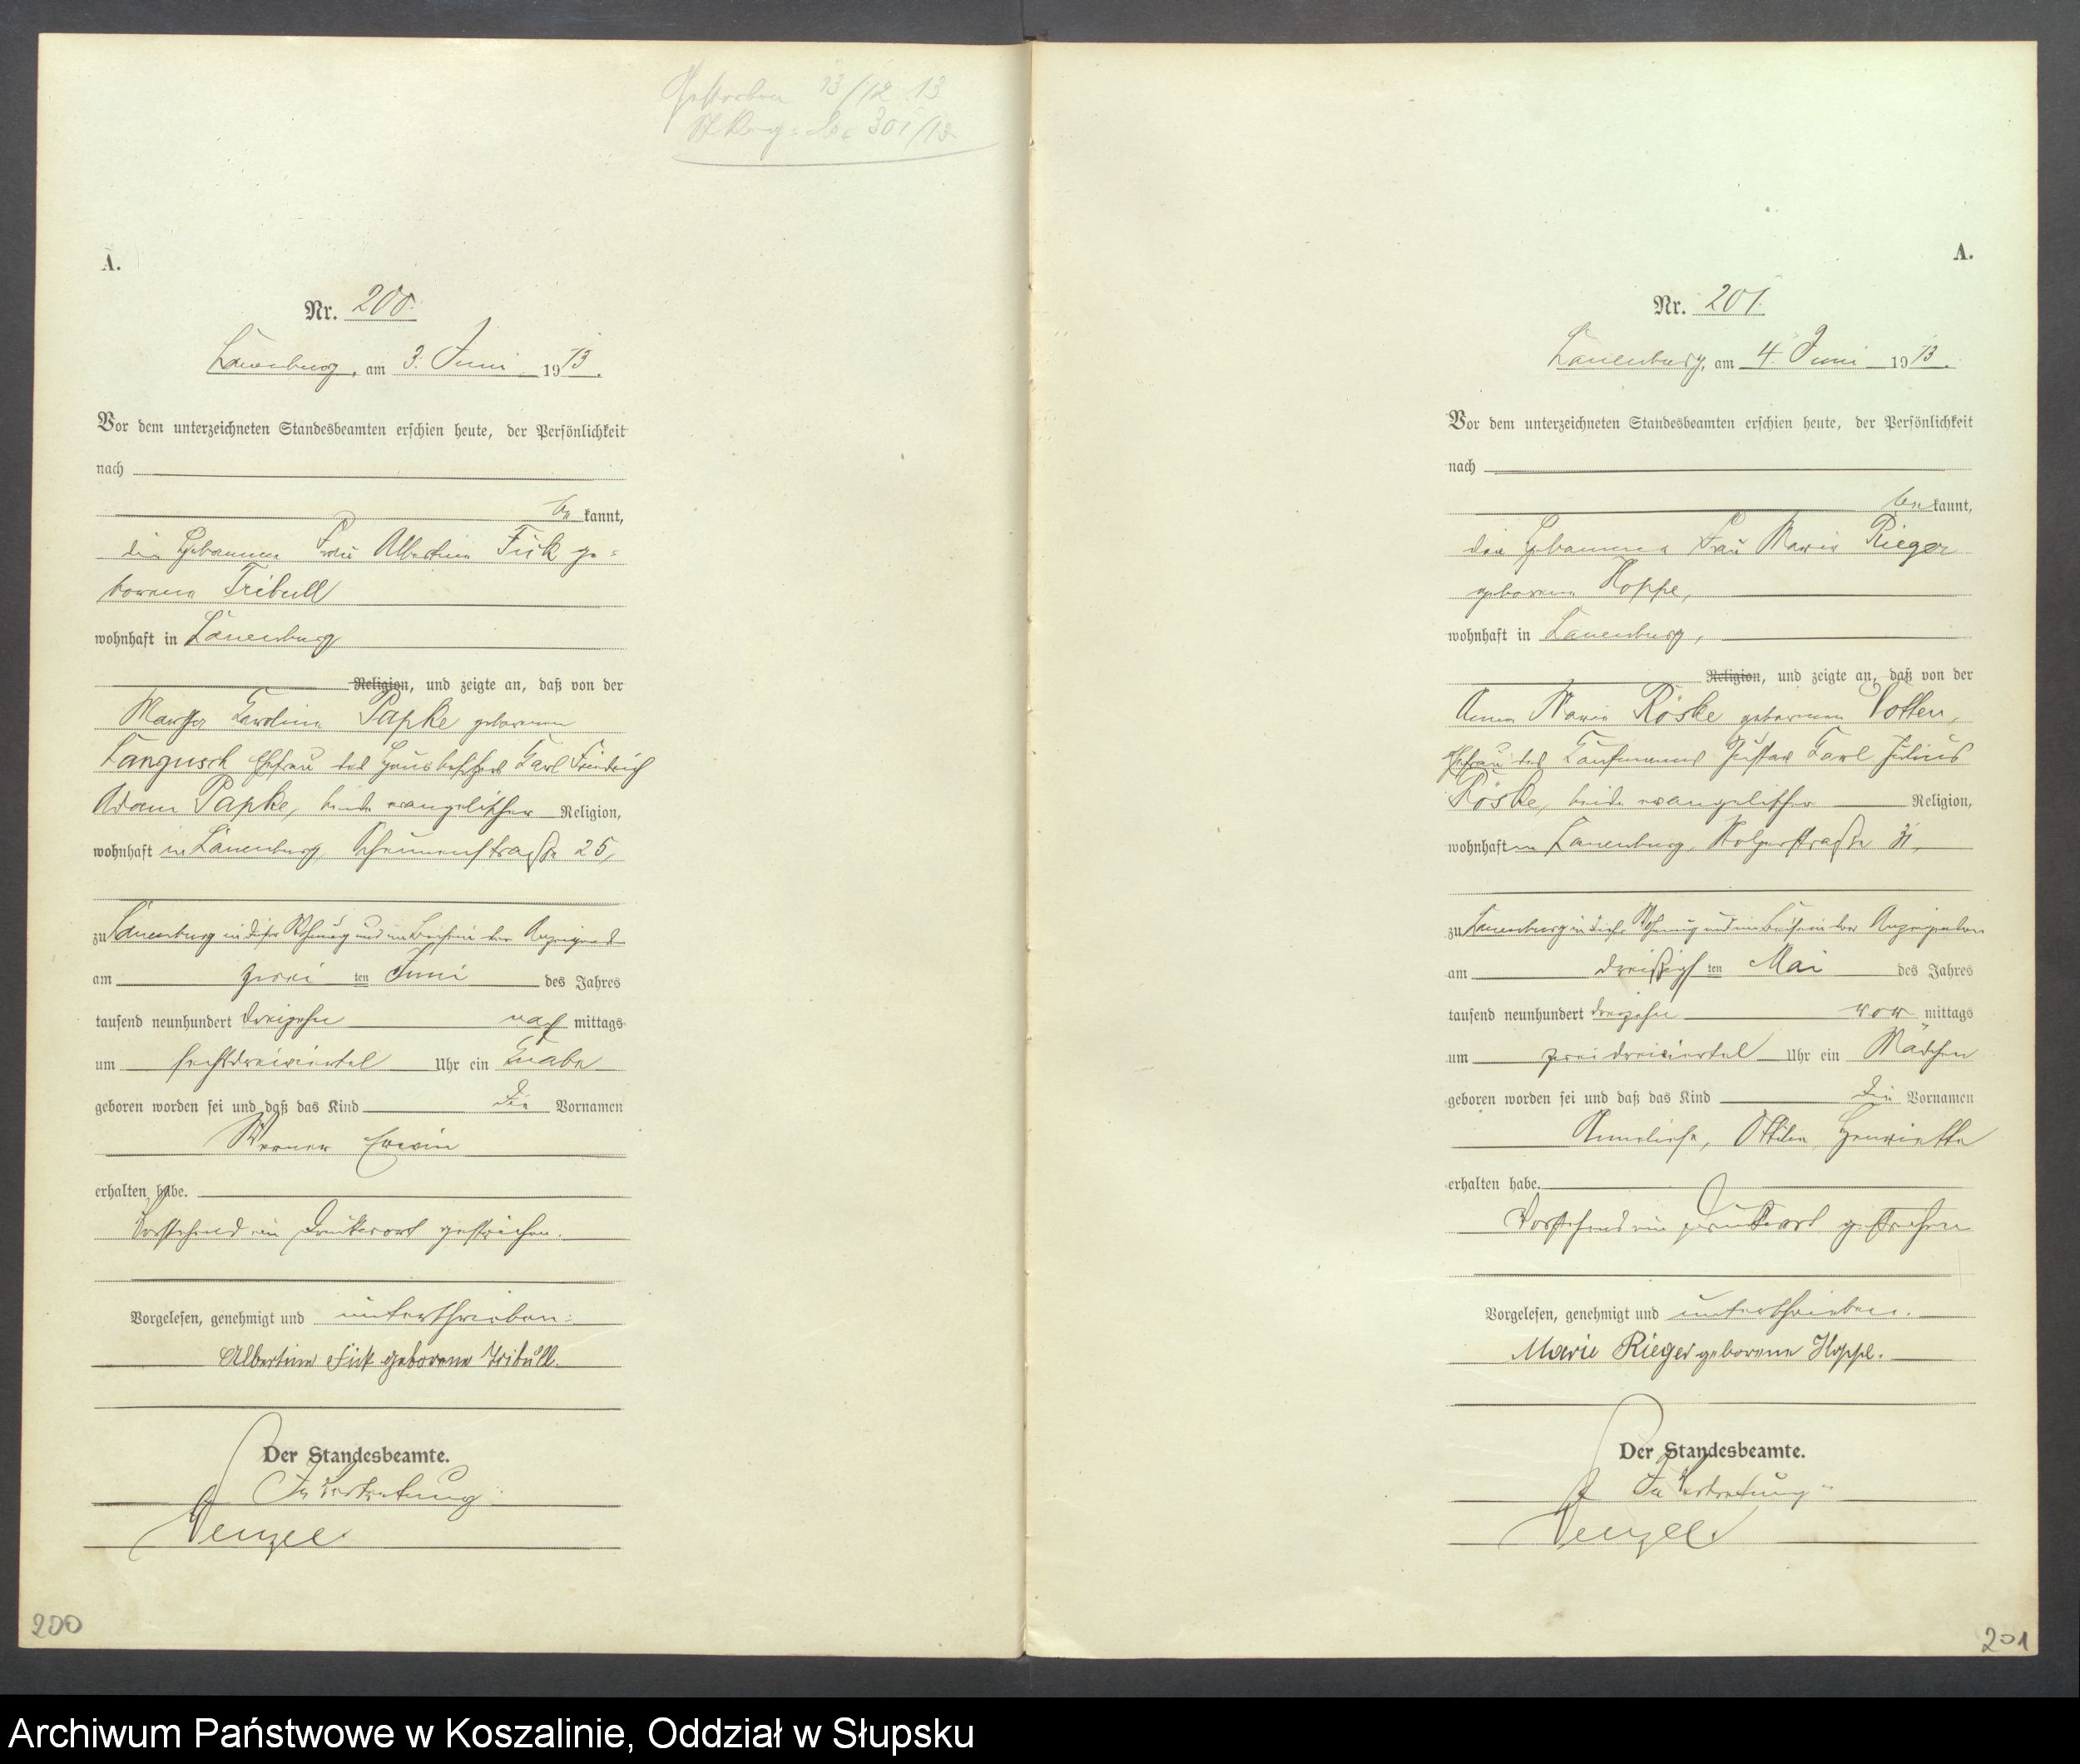 Gestorben 13/12. 13
St. Reg. No. 301/13
A.
Nr. 200.
Lauenburg, am 3. Juni 1913.
Vor dem unterzeichneten Standesbeamten erschien heute, der Persönlichkeit
nach
be kannt,
die Hebamme Frau Albertine Fick ge=
borene Tribull
wohnhaft in Lauenburg
Religion, und zeigte an, daß von der
Karoline Papke geborenen
Langusch Ehefrau des Hausbesitzers Karl Friedrich
Adam Papke, beide evangelischer Religion,
wohnhaft in Lauenburg, Scheunenstraße 25,
zu Lauenburg in dieser Wohnung und im Beisein der Anzeigend
am zwei ten Juni des Jahres
tausend neunhundert dreizehn nach mittags
um sechsdreiviertel Uhr ein Knabe
geboren worden sei und daß das Kind die Vornamen
Werner Erwin
erhalten habe.
Vorstehend ein Druckwort gestrichen.
Vorgelesen, genehmigt und unterschrieben.
Albertine Fick geborene Tribull.
Der Standesbeamte.
In Vertretung
Wenzel.
200
A.
Nr. 201.
Lauenburg, am 4. Juni 1913.
Vor dem unterzeichneten Standesbeamten erschien heute, der Persönlichkeit
nach
be kannt,
die Hebamme Frau Marie Rieger
geborene Hoppe,
wohnhaft in Lauenburg,
Religion, und zeigte an, daß von der
Anna Marie Röske geborenen
Ehefrau des Kaufmanns Gustav Karl Julius
Röske, beide evangelischer Religion,
wohnhaft in Lauenburg,
zu Lauenburg in dieser Wohnung und im Beisein der Anzeigenden
am dreißigsten Mai des Jahres
tausend neunhundert dreizehn vor mittags
um zweidreiviertel Uhr ein Mädchen
geboren worden sei und daß das Kind die Vornamen
Anneliese, Henriette
erhalten habe.
Vorstehend ein Druckwort gestrichen
Vorgelesen, genehmigt und unterschrieben.
Marie Rieger geborene Hoppe.
Der Standesbeamte.
In Vertretung
Wenzel
201
Archiwum Państwowe w Koszalinie, Oddział w Słupsku